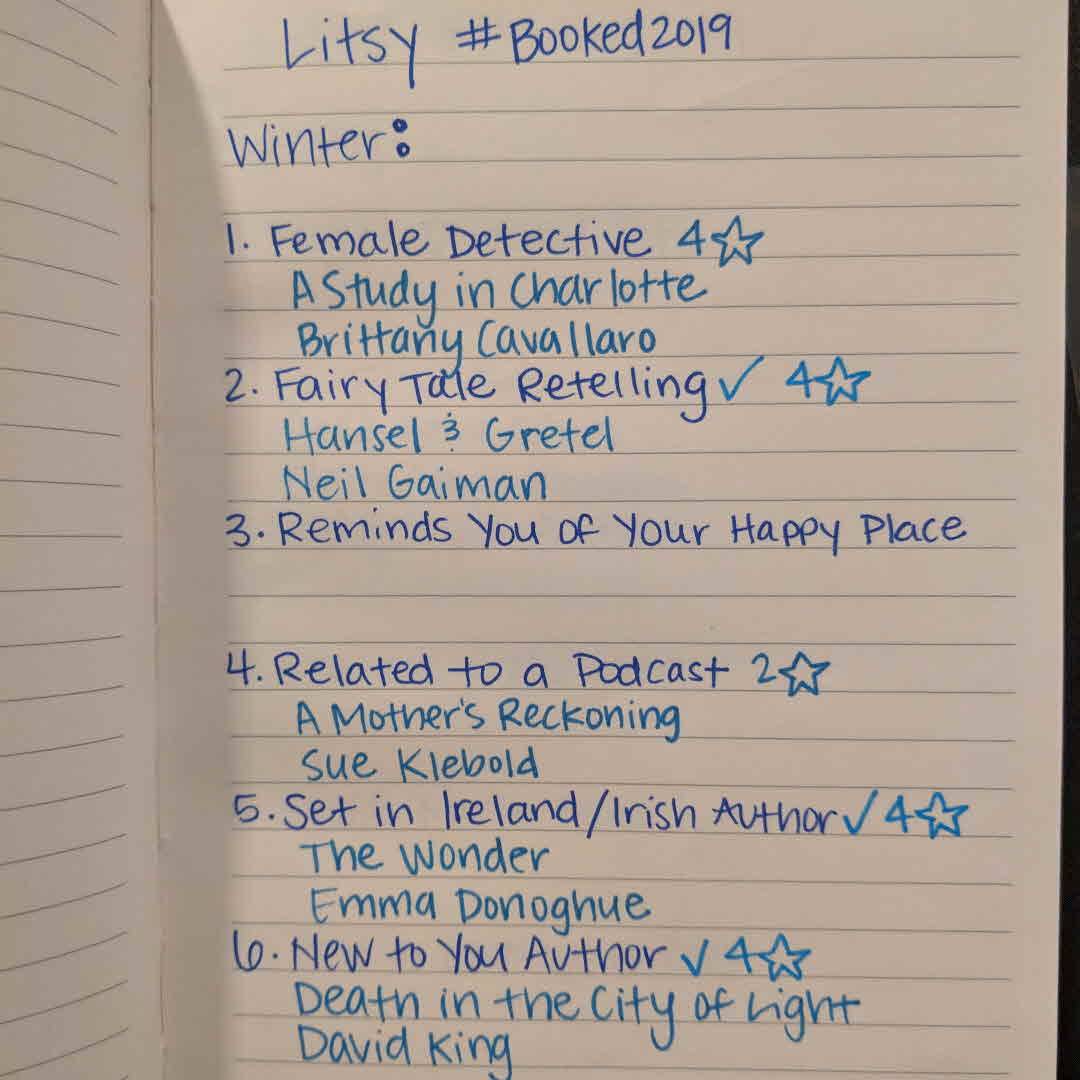 Litsy #Booked2019
Winter:
1. Female Detective 4☆
A Study in Charlotte
Brittany Cavallaro
2. Fairy Tale Retelling ✓ 4☆
Hansel & Gretel
Neil Gaiman
3. Reminds You of Your Happy Place
4. Related to a Podcast 2☆
A Mother's Reckoning
Sue Klebold
5. Set in Ireland/Irish Author ✓ 4☆
The Wonder
Emma Donoghue
6. New to You Author ✓ 4☆
Death in the City of Light
David King